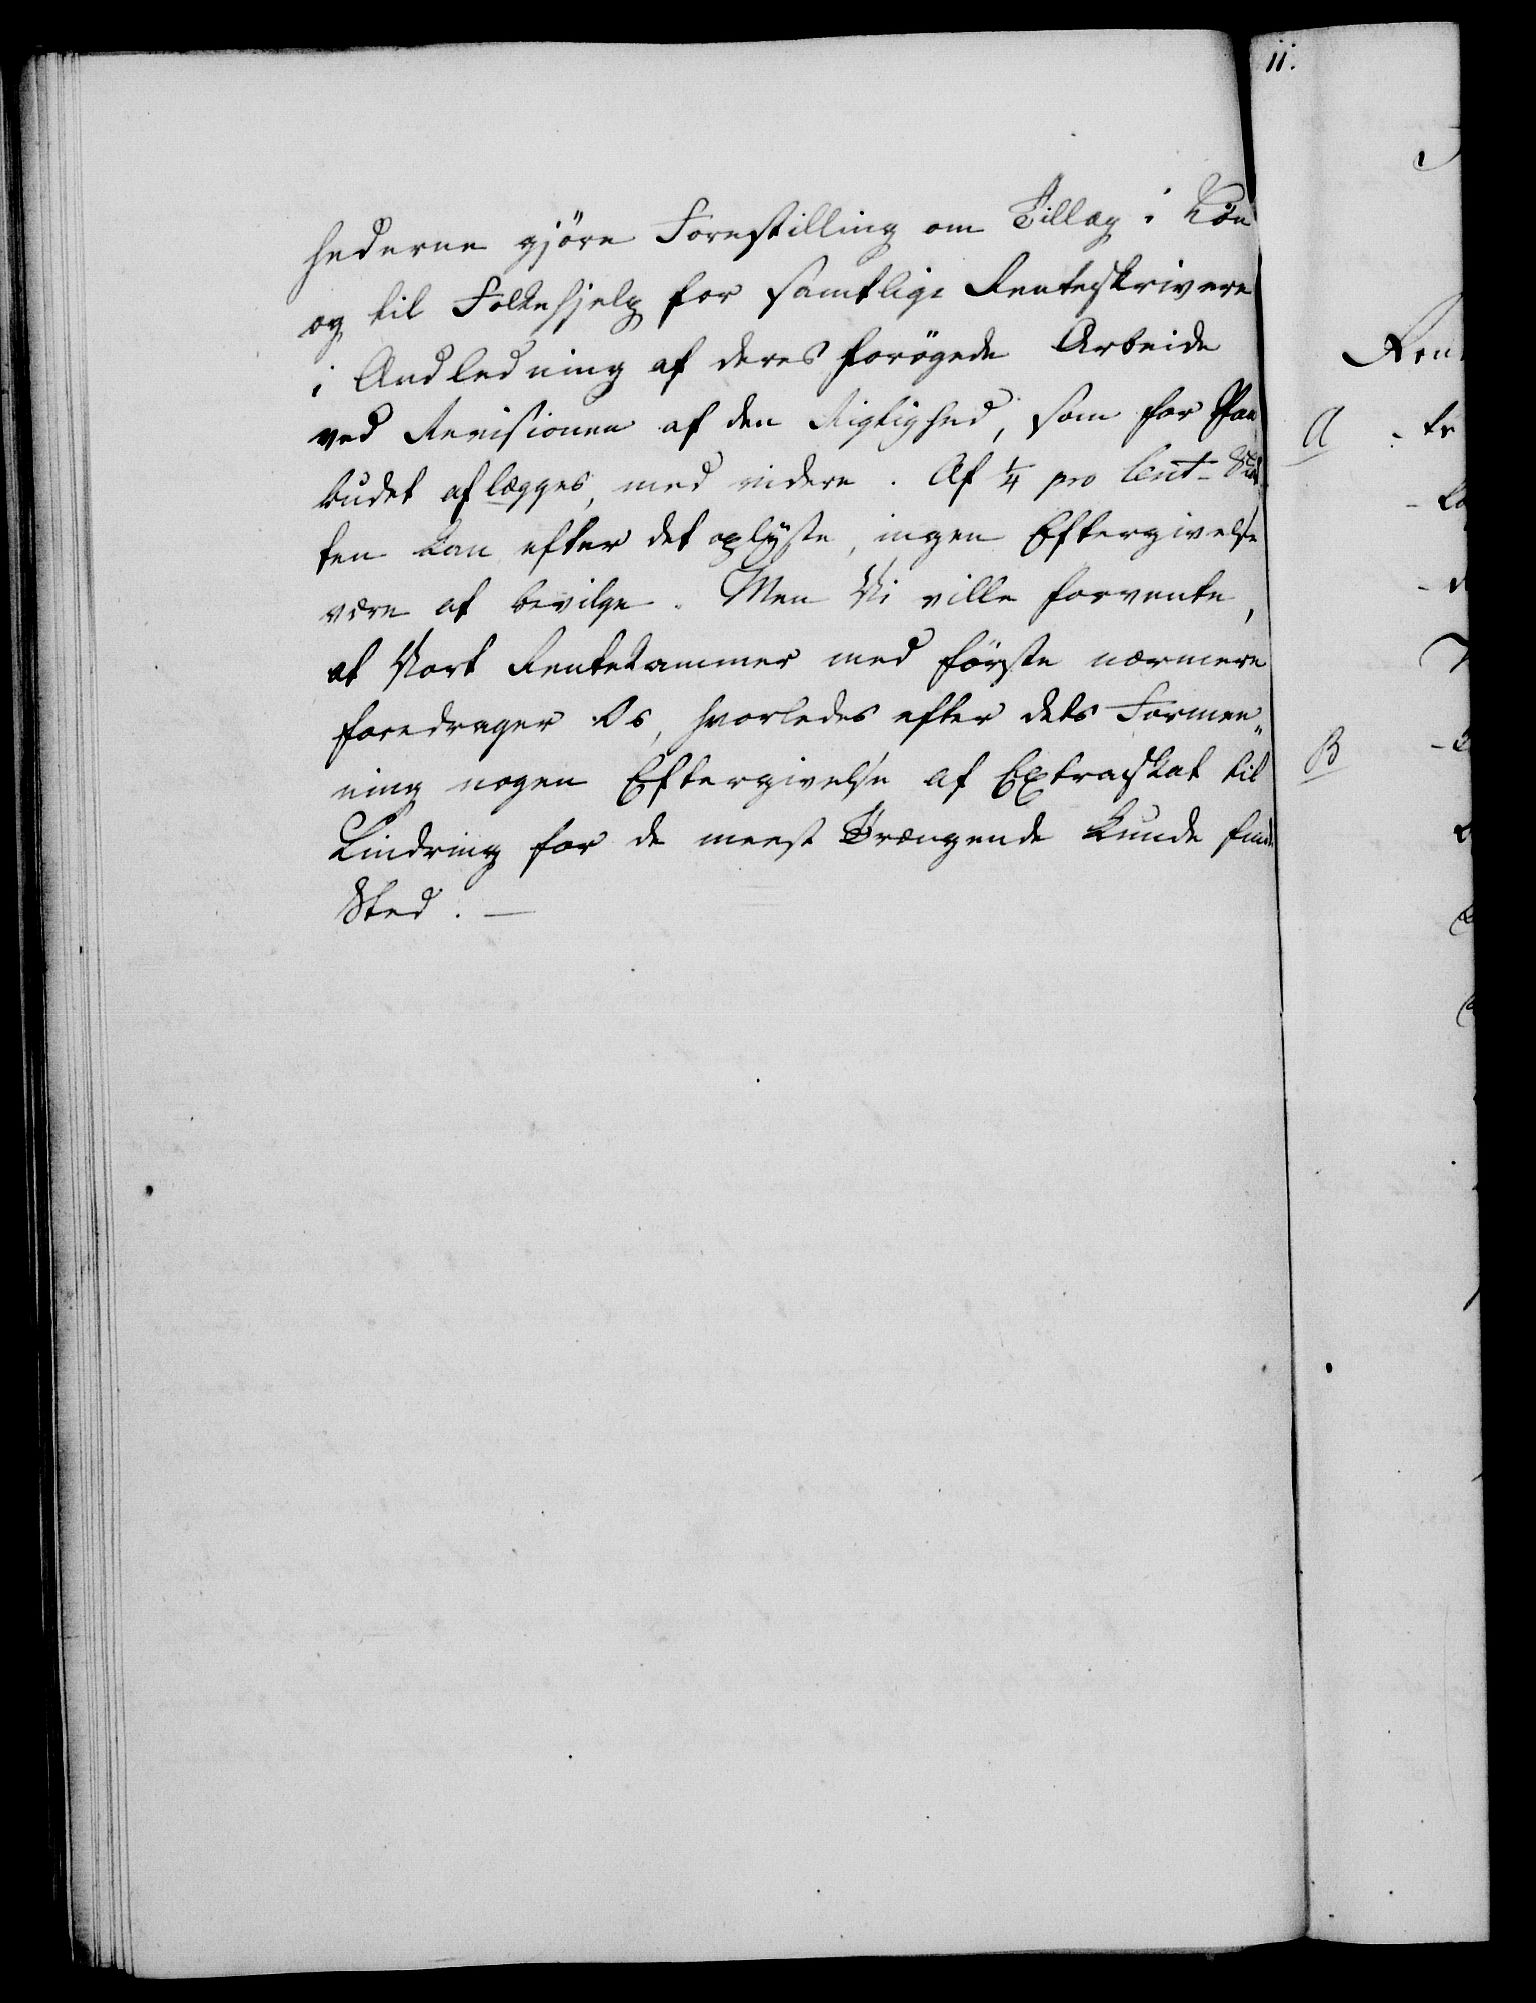 hederne gjøre Forestilling om Tillæg i Løn
og til Folkehjelp for samtlige Renteskrivere
i Andledning af deres forøgede Arbeide
ved Revisionen af den Rigtighed, som for Paa
budet aflægges, med videre. Af ¼ pro Cent Skat
ten kan efter det oplyste, ingen Eftergivelse
være at bevilge. Men Vi ville forvente,
at Vort Rentekammer med første nærmere
foredrager Os, hvorledes efter dets Formee„
ning nogen Eftergivelse af Extraskat til
Lindring for de meest Trængende kunde finde
Sted. —
11.
A
B